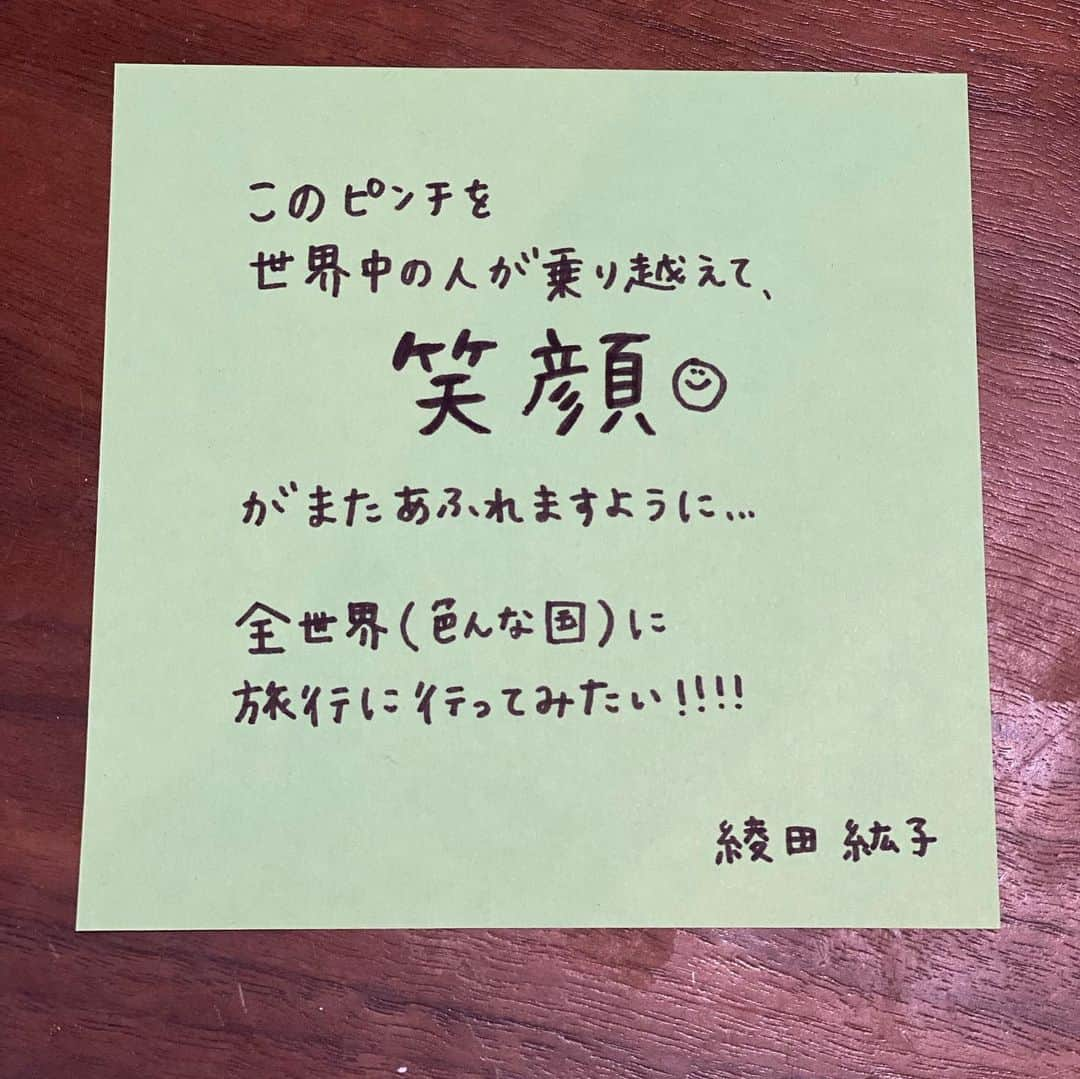 このピンチを
世界中の人が乗り越えて、
笑顔☺
がまたあふれますように...
全世界(色んな国)に
旅行に行ってみたい!!!!
綾田 紘子